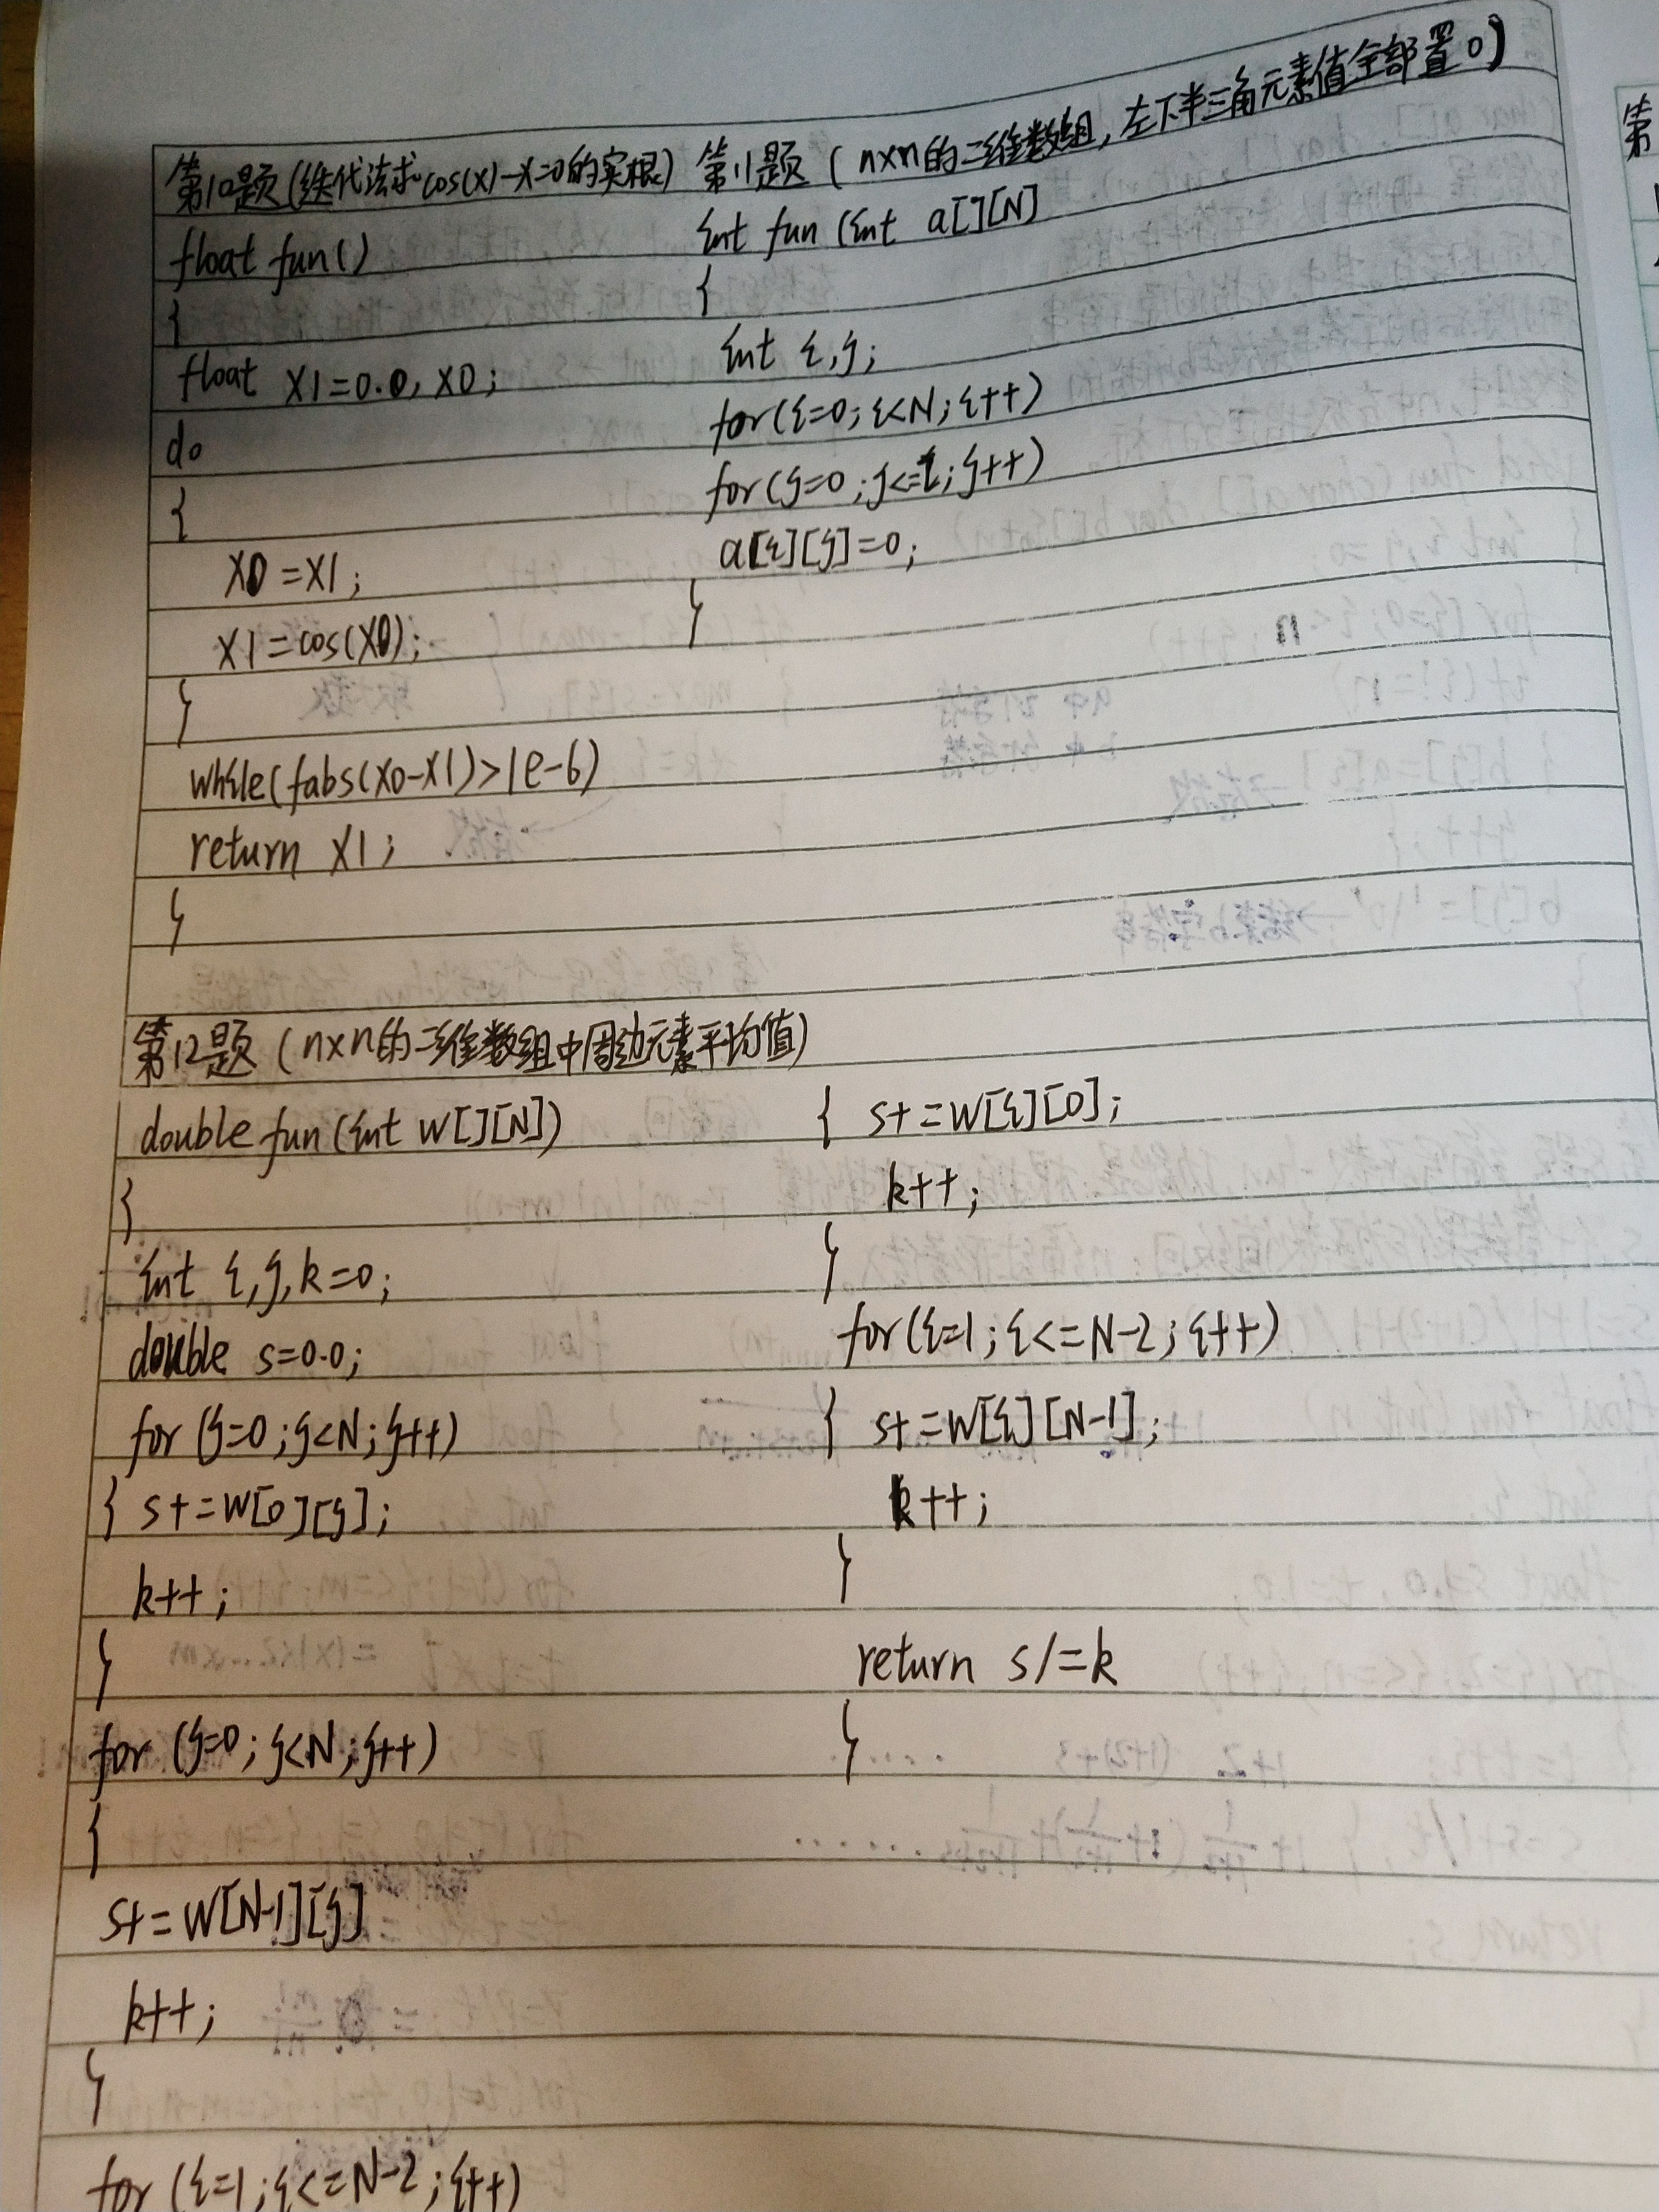 第10题(迭代法求cos(x)-x=0的实根)
float fun()
{
float x1=0.0, x0;
do
{
x0=x1;
x1=cos(x0);
}
while(fabs(x0-x1)>1e-6)
return x1;
}
第11题(n×n的二维数组,左下半三角元素值全部置0)
int fun (int a[][N]
{
int i,j;
for(i=0;i<N;i++)
for(j=0;j<=i;j++)
a[i][j]=0;
}
第12题(n×n的二维数组中周边元素平均值)
double fun(int w[][N])
{
int i,j,k=0;
double s=0.0;
for(j=0;j<N;j++)
{ s+=w[0][j];
k++;
}
for (j=0;j<N;j++)
{
s+=w[N-1][j]
k++;
}
for (i=1;i<=N-2;i++)
{ s+=w[i][0];
k++;
}
for(i=1;i<=N-2;i++)
{ s+=w[i][N-1];
k++;
}
return s/=k
}